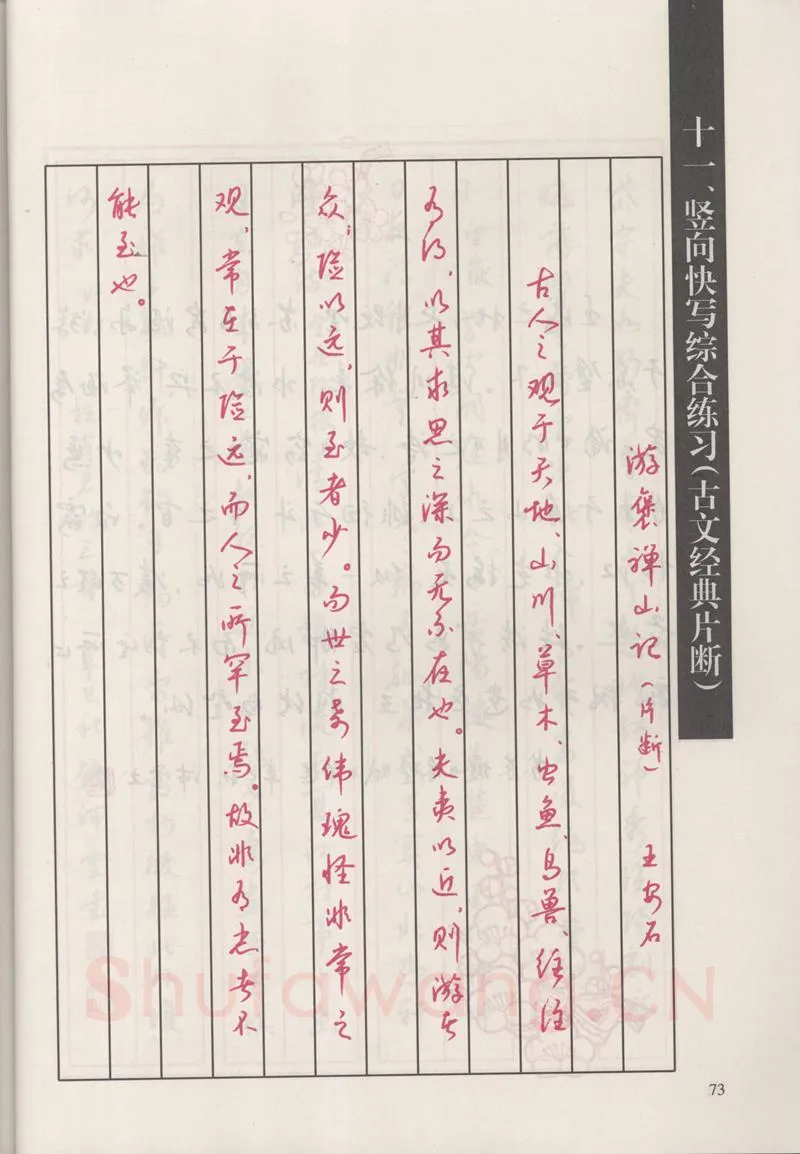 十一、竖向快写综合练习(古文经典片断)
游褒禅山记(片断) 王安石
古人之观于天地、山川、草木、虫鱼、鸟兽、往往
有得,以其求思之深而无不在也。夫夷以近,则游者
众;险以远,则至者少。而世之奇伟瑰怪非常之
观,常在于险远,而人之所罕至焉。故非有志者不
能至也。
Shufawang.CN
73